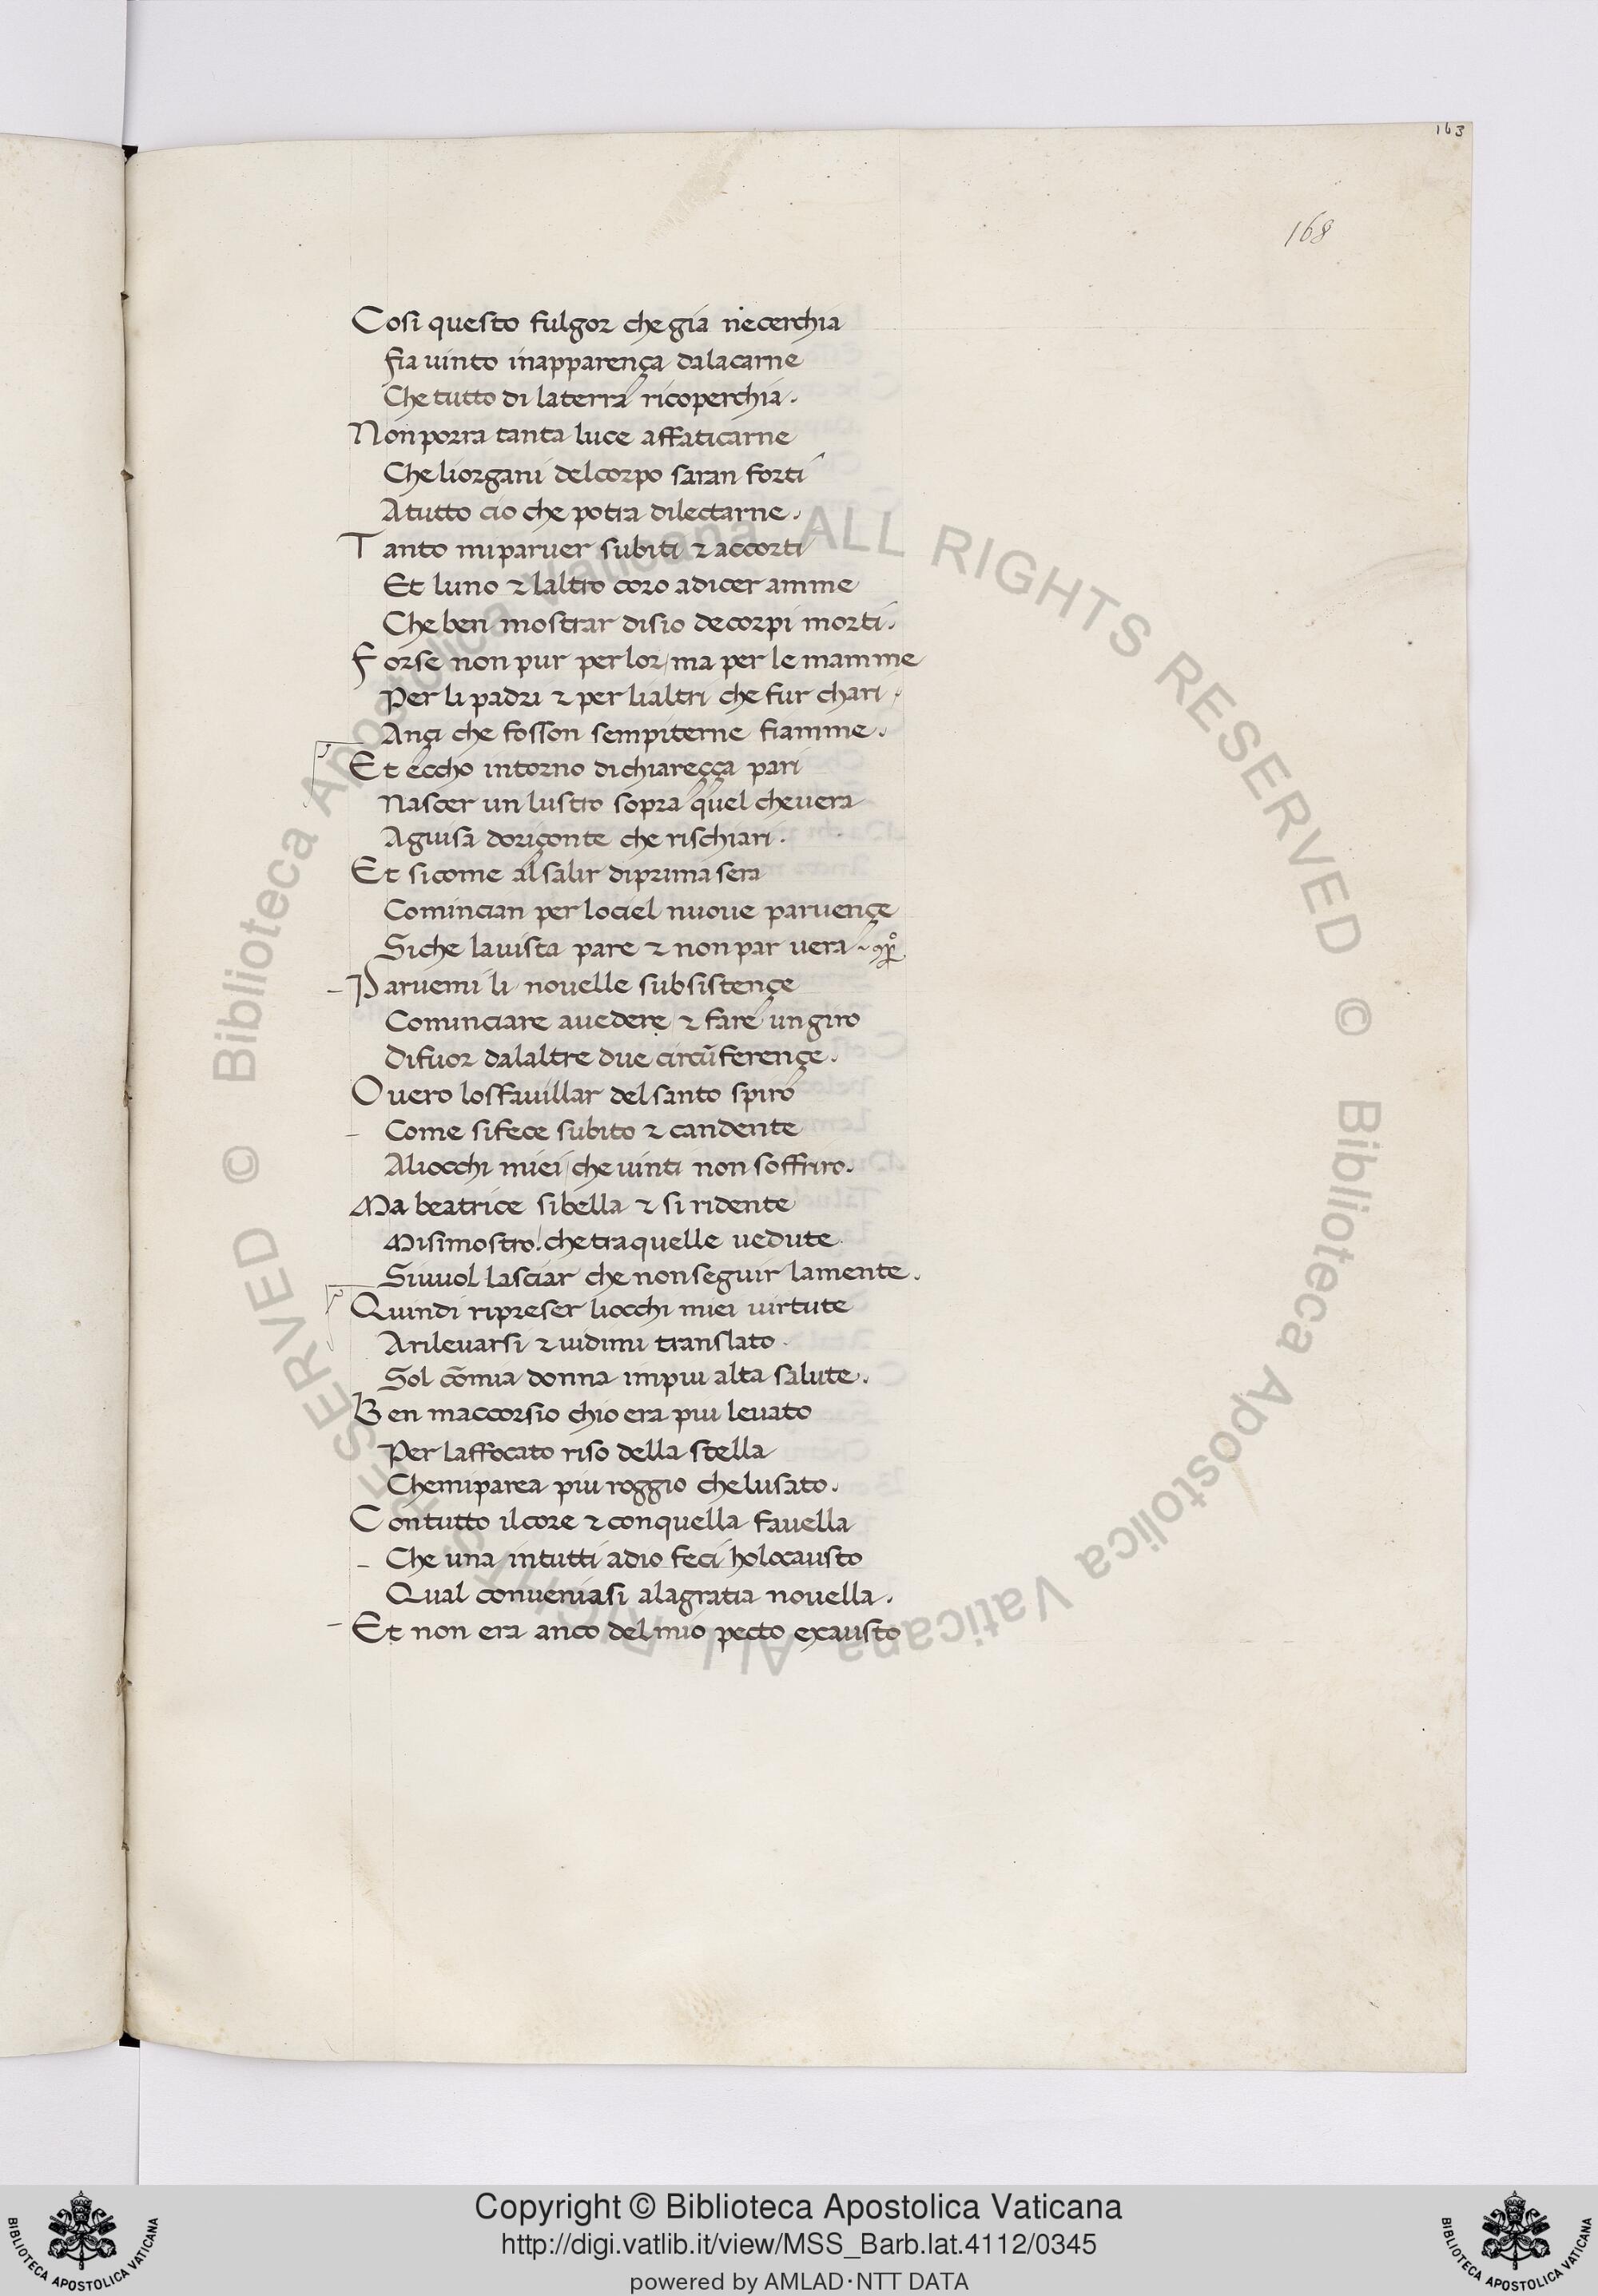 163
168
Cosi questo fulgor chegia necerchia
fia uinto inapparença dalacarne
Che tutto di laterra ricoperchia.
Nonporra tanta luce affaticarne
Che liorgani delcorpo saran forti
Atutto cio che potra dilectarne.
Tanto miparuer subiti ⁊ accorti
Et luno ⁊ laltro coro adicer amme
Che ben mostrar disio decorpi morti.
Forse non pur per lor/ma per le mamme
Per li padri ⁊ per lialtri che fur chari
Ançi che fosson sempiterne fiamme.
Et eccho intorno dichiareçça pari
Nascer un lustro sopra quel cheuera
Aguisa doriçonte che rischiari.
Et sicome alsalir diprima sera
Comincian per lociel nuoue paruençe
Siche lauista pare ⁊ nonpar uera
Paruemi li nouelle subsistençe
Cominciare auedere/⁊ fare ungiro
Difuor dalaltre due circūferençe.
Ouero losfauillar delsanto spiro
Come sifece subito ⁊ candente
Aliocchi miei/che uinti non soffriro.
Ma beatrice sibella ⁊ si ridente
Misimostro./chetraquelle uedute
Siuuol lasciar che nonseguir lamente.
Quindi ripreser liocchi miei uirtute
Arileuarsi ⁊ uidimi translato
Sol cōmia donna impiu alta salute.
Ben maccorsio chio era piu leuato
Per laffocato riso della stella
Chemiparea piu roggio chelusato.
Contutto ilcore ⁊ conquella fauella
Che una intutti adio feci holocausto
Qual conueniasi alagratia nouella.
Et non era anco delmio pecto exausto
© Biblioteca Apostolica Vaticana ALL RIGHTS RESERVED © Biblioteca Apostolica Vaticana ALL RIGHTS RESERVED
Copyright © Biblioteca Apostolica Vaticana
http://digi.vatlib.it/view/MSS_Barb.lat.4112/0345
powered by AMLAD·NTT DATA
BIBLIOTECA APOSTOLICA VATICANA
BIBLIOTECA APOSTOLICA VATICANA